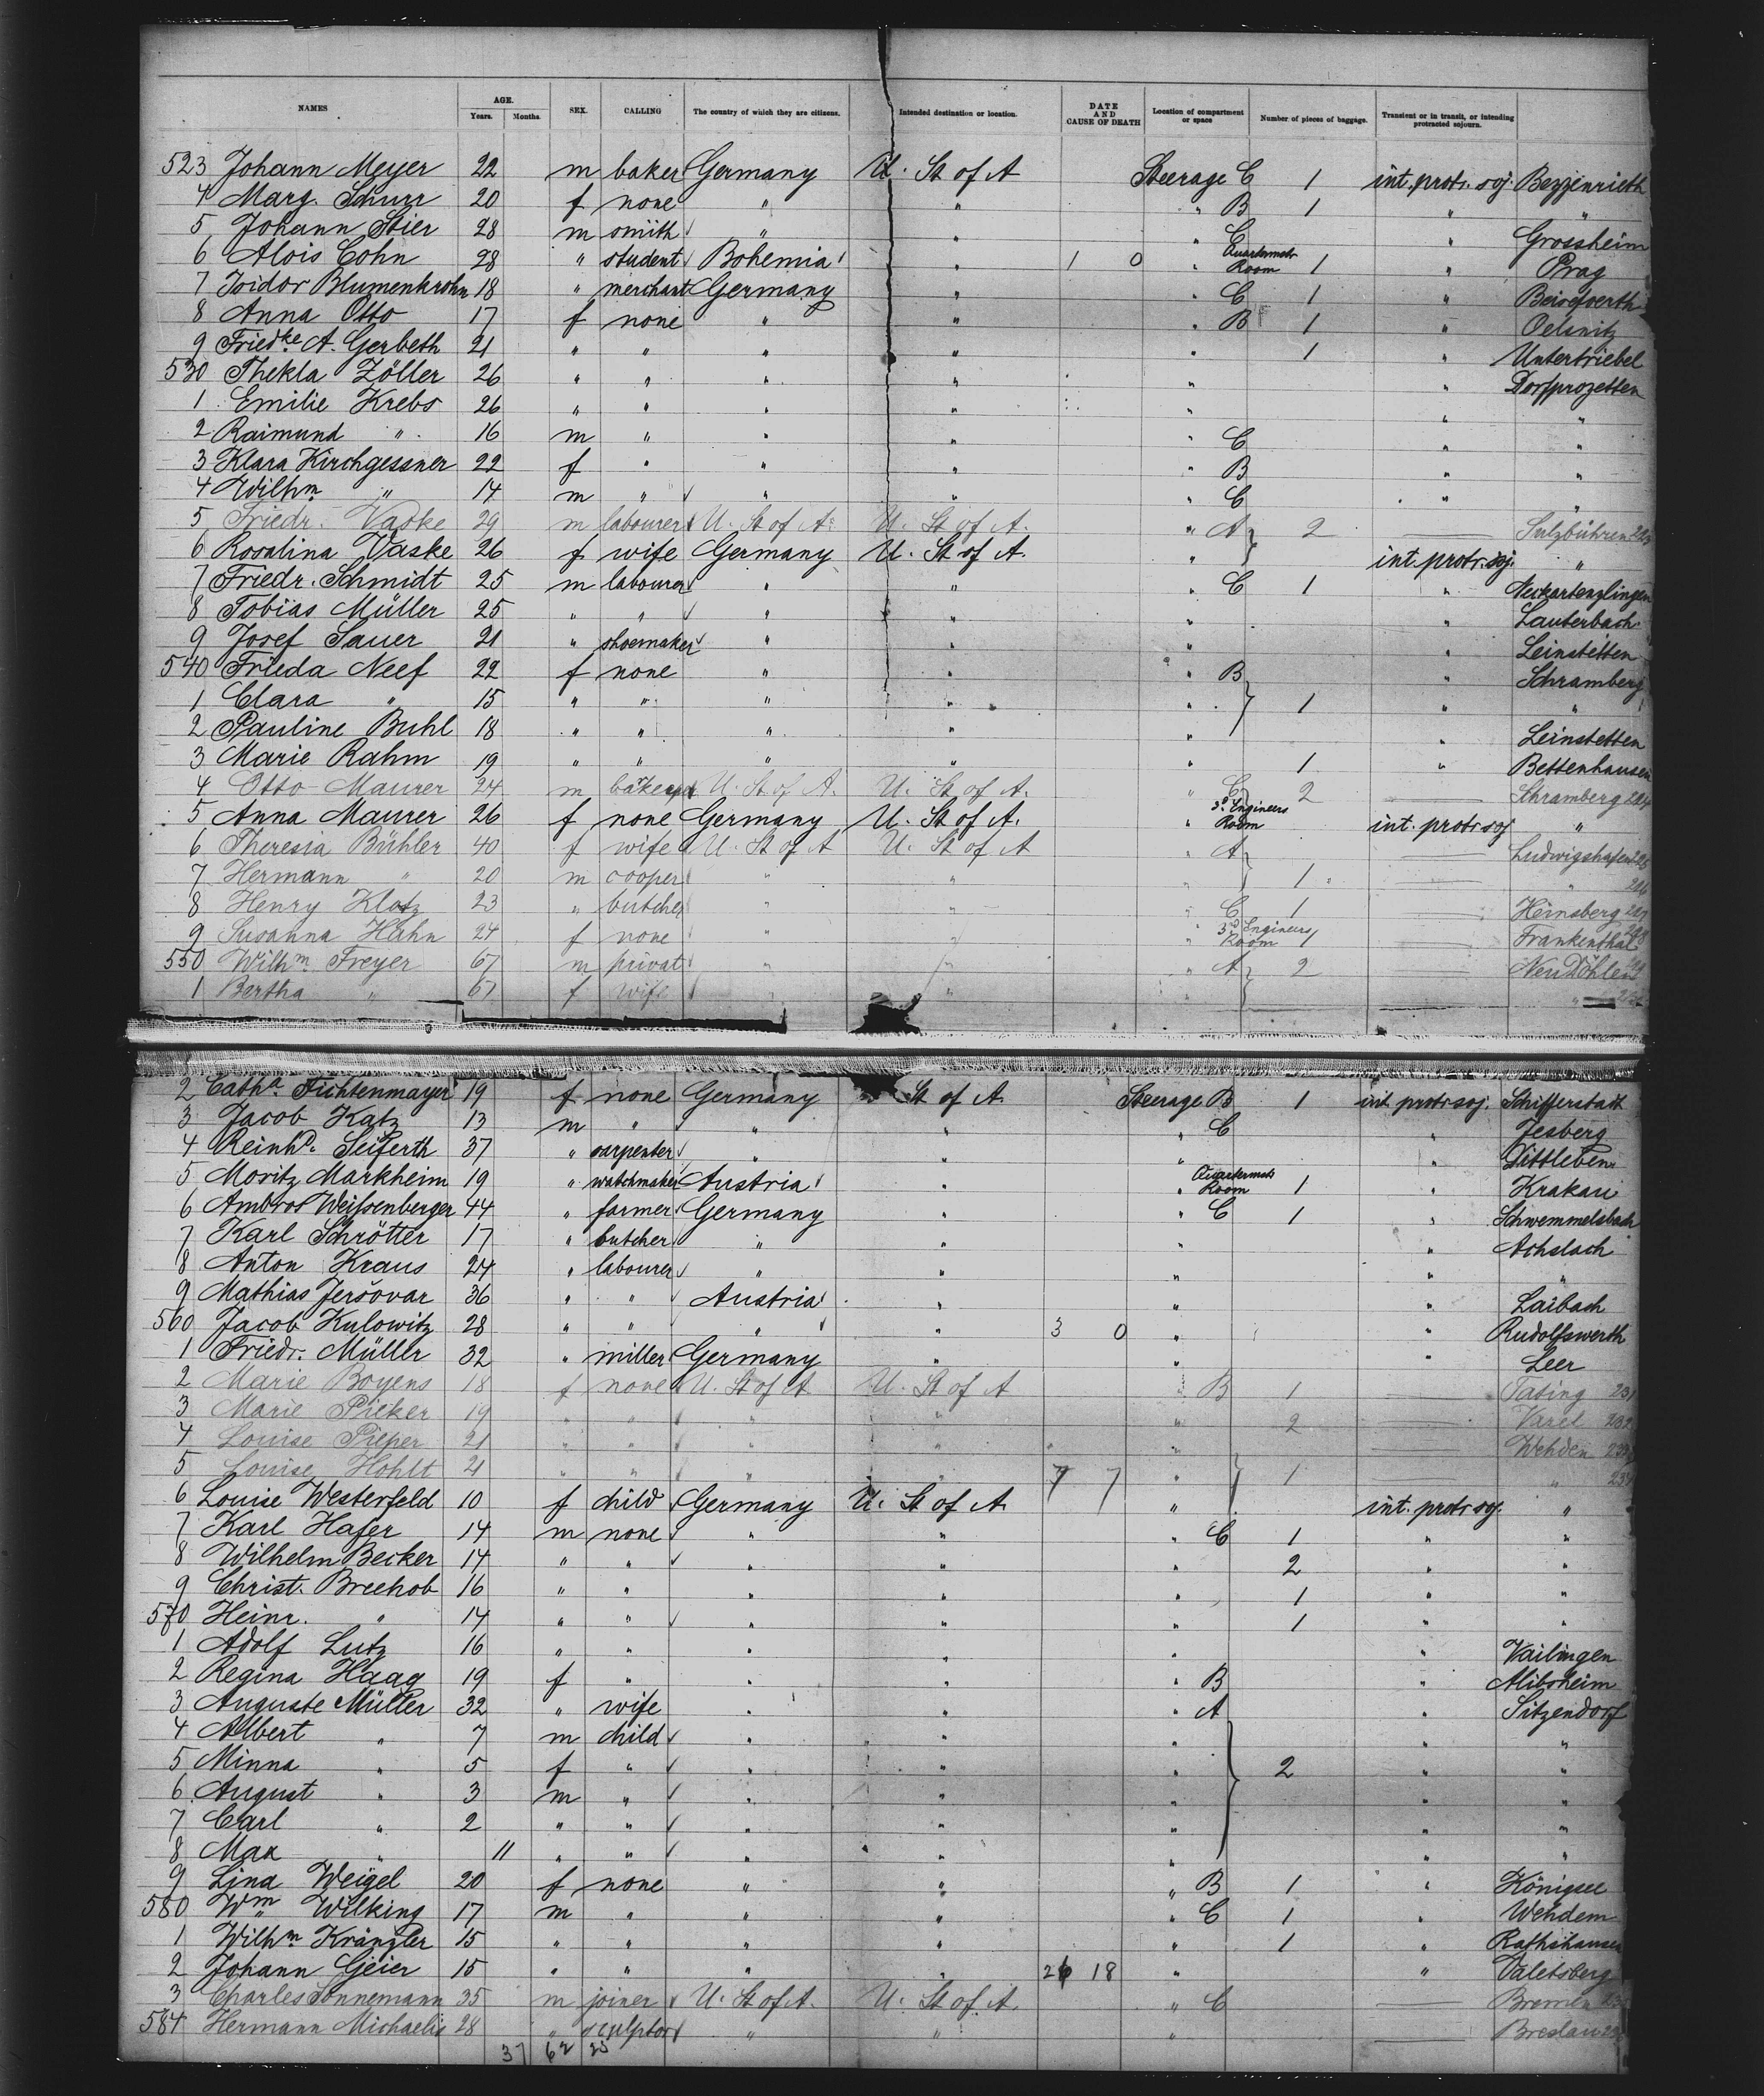 NAMES AGE. Years. Months. SEX. CALLING The country of which they are citizens. Intended destination or location. DATE AND CAUSE OF DEATH Location of compartment or space Number of pieces of baggage. Transient or in transit, or intending protracted sojourn.
523 Johann Meyer 22 m baker Germany U. St of A Steerage C 1 int. protr. soj. Bezzenrieth
4 Marg. Schurr 20 f none " " " B 1 " "
5 Johann Stier 28 m smith " " " C " Grossheim
6 Alois Cohn 28 " student Bohemia " 1 0 " Quartermstr Room 1 " Prag
7 Isidor Blumenkrohn 18 " merchant Germany " " C 1 "
8 Anna Otto 17 f none " " " B 1 " Oelsnitz
9 Friedke A. Gerbeth 21 " " " " " 1 " Untertriebel
530 Thekla Zöller 26 " " " " " " Dorfprozetten
1 Emilie Krebs 26 " " " " " " "
2 Raimund " 16 m " " " " C " "
3 Klara Kirchgessner 22 f " " " " B " "
4 Wilhm " 14 m " " " " C " "
5 Friedr. Vaske 29 m labourer U. St of A. U. St of A. " A 2 — Sulzbühren
6 Rosalina Vaske 26 f wife Germany U. St of A. " int. protr. soj. "
7 Friedr. Schmidt 25 m labourer " " " C 1 " Neckartenzlingen
8 Tobias Müller 25 " " " " " " Lauterbach
9 Josef Sauer 21 " shoemaker " " " " Leinstetten
540 Frieda Neef 22 f none " " " B " Schramberg
1 Clara " 15 " " " " " 1 " "
2 Pauline Buhl 18 " " " " " " Leinstetten
3 Marie Rahm 19 " " " " " 1 " Bettenhausen
4 Otto Maurer 24 m U. St of A. U. St of A. " C 2 — Schramberg 224
5 Anna Maurer 26 f none Germany U. St of A. " 3d Engineers Room int. protr soj "
6 Theresia Bühler 40 f wife U. St of A U. St of A " A — Ludwigshafen
7 Hermann " 20 m cooper " " 1 — " 226
8 Henry Klotz 23 " butcher " " " C 1 — Heinsberg 227
9 Susanna Hahn 24 f none " " " 3d Engineers Room 1 — Frankenthal
550 Wilhm Freyer 67 m privat " " " A 2 — Neu Döhlen
1 Bertha " 67 f wife " " " — "
2 Catha. Fichtenmayer 19 f none Germany St of A. Steerage B 1 int protr soj. Schifferstatt
3 Jacob Katz 13 m " " " " C " Jesberg
4 Reinhd. Seiferth 37 " carpenter " " " " Wittleben
5 Moritz Markheim 19 " watchmaker Austria " " Quartermstr Room 1 " Krakau
6 Ambros Weissenberger 44 " farmer Germany " " C 1 " Schwemmelsbach
7 Karl Schrötter 17 " butcher " " " " Achslach
8 Anton Kraus 24 " labourer " " " " "
9 Mathias Jersovar 36 " " Austria " " " Laibach
560 Jacob Kulowitz 28 " " " " 3 0 " " Rudolfswerth
1 Friedr. Müller 32 " miller Germany " " " Leer
2 Marie Boyens 18 f none U. St of A U. St of A " B 1 — Tating 231
3 Marie Picker 19 " " " " " 2 — Varel 232
4 Louise Pieper 21 " " " " " — Wehden 233
5 Louise Hohlt 21 " " " " 7 7 " 1 — " 234
6 Louise Westerfeld 10 f child Germany U. St of A. " int. protr soj. "
7 Karl Hafer 14 m none " " " C 1 " "
8 Wilhelm Becker 14 " " " " " 2 " "
9 Christ. Breehob 16 " " " " " 1 " "
570 Heinr. " 14 " " " " " 1 " "
1 Adolf Lutz 16 " " " " " " Vaihingen
2 Regina Haag 19 f " " " " B " Alibsheim
3 Auguste Müller 32 " wife " " " A " Sitzendorf
4 Albert " 7 m child " " " " "
5 Minna " 5 f " " " " 2 " "
6 August " 3 m " " " " " "
7 Carl " 2 " " " " " " "
8 Max " 11 " " " " " " "
9 Lina Weigel 20 f none " " " B 1 " Königsee
580 Wm Wilking 17 m " " " " C 1 " Wehdem
1 Wilhm Kränzler 15 " " " " " 1 " Rathshausen
2 Johann Geier 15 " " " " 26 18 " " Valetsberg
3 Charles Sonnemann 35 m joiner U. St of A. U. St of A. " C — Bremen
584 Hermann Michaelis 28 " sculptor " " " — Breslau
37 62 25